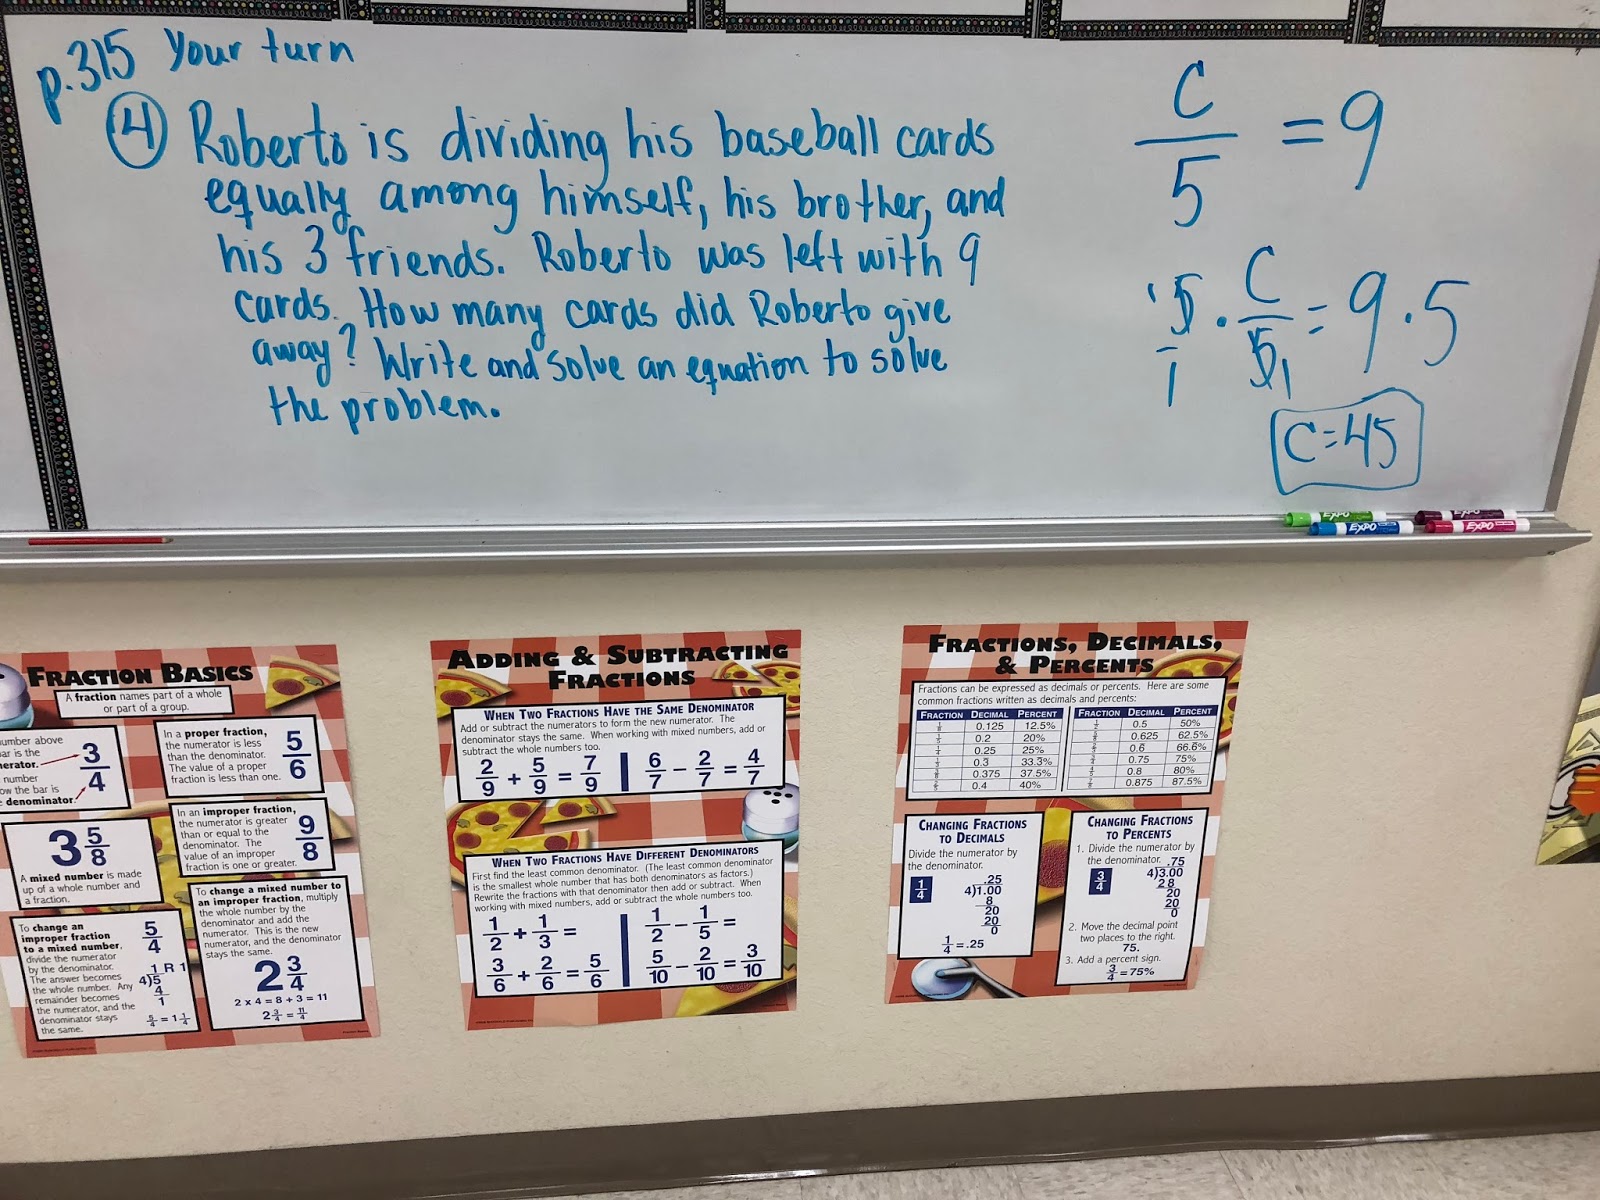 p.315 Your turn
④ Roberto is dividing his baseball cards
equally among himself, his brother, and
his 3 friends. Roberto was left with 9
cards. How many cards did Roberto give
away? Write and solve an equation to solve
the problem.
C/5 = 9
5/1 · C/5 = 9 · 5
1 1
C=45
EXPO
EXPO
EXPO
EXPO
FRACTION BASICS
A fraction names part of a whole
or part of a group.
number above
bar is the
3/4
number
ow the bar is
denominator.
In a proper fraction,
the numerator is less
than the denominator.
The value of a proper
fraction is less than one.
5/6
3 5/8
A mixed number is made
up of a whole number and
a fraction.
In an improper fraction,
the numerator is greater
than or equal to the
denominator. The
value of an improper
fraction is one or greater.
9/8
To change an
improper fraction
to a mixed number,
divide the numerator
by the denominator.
The answer becomes
the whole number. Any
remainder becomes
the numerator, and the
denominator stays
the same.
5/4
1 R 1
4)5
4
1
5/4 = 1 1/4
To change a mixed number to
an improper fraction, multiply
the whole number by the
denominator and add the
numerator. This is the new
numerator, and the denominator
stays the same.
2 3/4
2 x 4 = 8 + 3 = 11
2 3/4 = 11/4
ADDING & SUBTRACTING
FRACTIONS
WHEN TWO FRACTIONS HAVE THE SAME DENOMINATOR
Add or subtract the numerators to form the new numerator. The
denominator stays the same. When working with mixed numbers, add or
subtract the whole numbers too.
2/9 + 5/9 = 7/9 | 6/7 − 2/7 = 4/7
WHEN TWO FRACTIONS HAVE DIFFERENT DENOMINATORS
First find the least common denominator. (The least common denominator
is the smallest whole number that has both denominators as factors.)
Rewrite the fractions with that denominator then add or subtract. When
working with mixed numbers, add or subtract the whole numbers too.
1/2 + 1/3 = | 1/2 − 1/5 =
3/6 + 2/6 = 5/6 | 5/10 − 2/10 = 3/10
FRACTIONS, DECIMALS,
& PERCENTS
Fractions can be expressed as decimals or percents. Here are some
common fractions written as decimals and percents:
FRACTION DECIMAL PERCENT FRACTION DECIMAL PERCENT
1/8 0.125 12.5% 1/2 0.5 50%
1/5 0.2 20% 5/8 0.625 62.5%
1/4 0.25 25% 2/3 0.6̅ 66.6̅%
1/3 0.3̅ 33.3̅% 3/4 0.75 75%
3/8 0.375 37.5% 4/5 0.8 80%
2/5 0.4 40% 7/8 0.875 87.5%
CHANGING FRACTIONS
TO DECIMALS
Divide the numerator by
the denominator.
1/4
.25
4)1.00
8
20
20
0
1/4 = .25
CHANGING FRACTIONS
TO PERCENTS
1. Divide the numerator by
the denominator.
3/4
.75
4)3.00
28
20
20
0
2. Move the decimal point
two places to the right.
75.
3. Add a percent sign.
3/4 = 75%